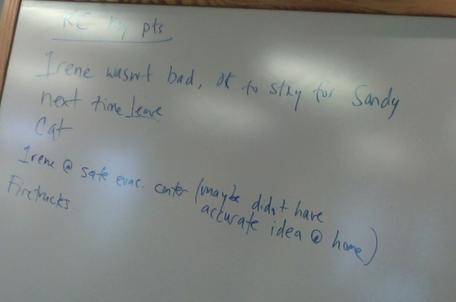 Key pts
Irene wasn't bad, ok to stay for Sandy
next time leave
Cat
Irene @ safe evac. center (maybe didn't have
accurate idea @ home)
Firetrucks